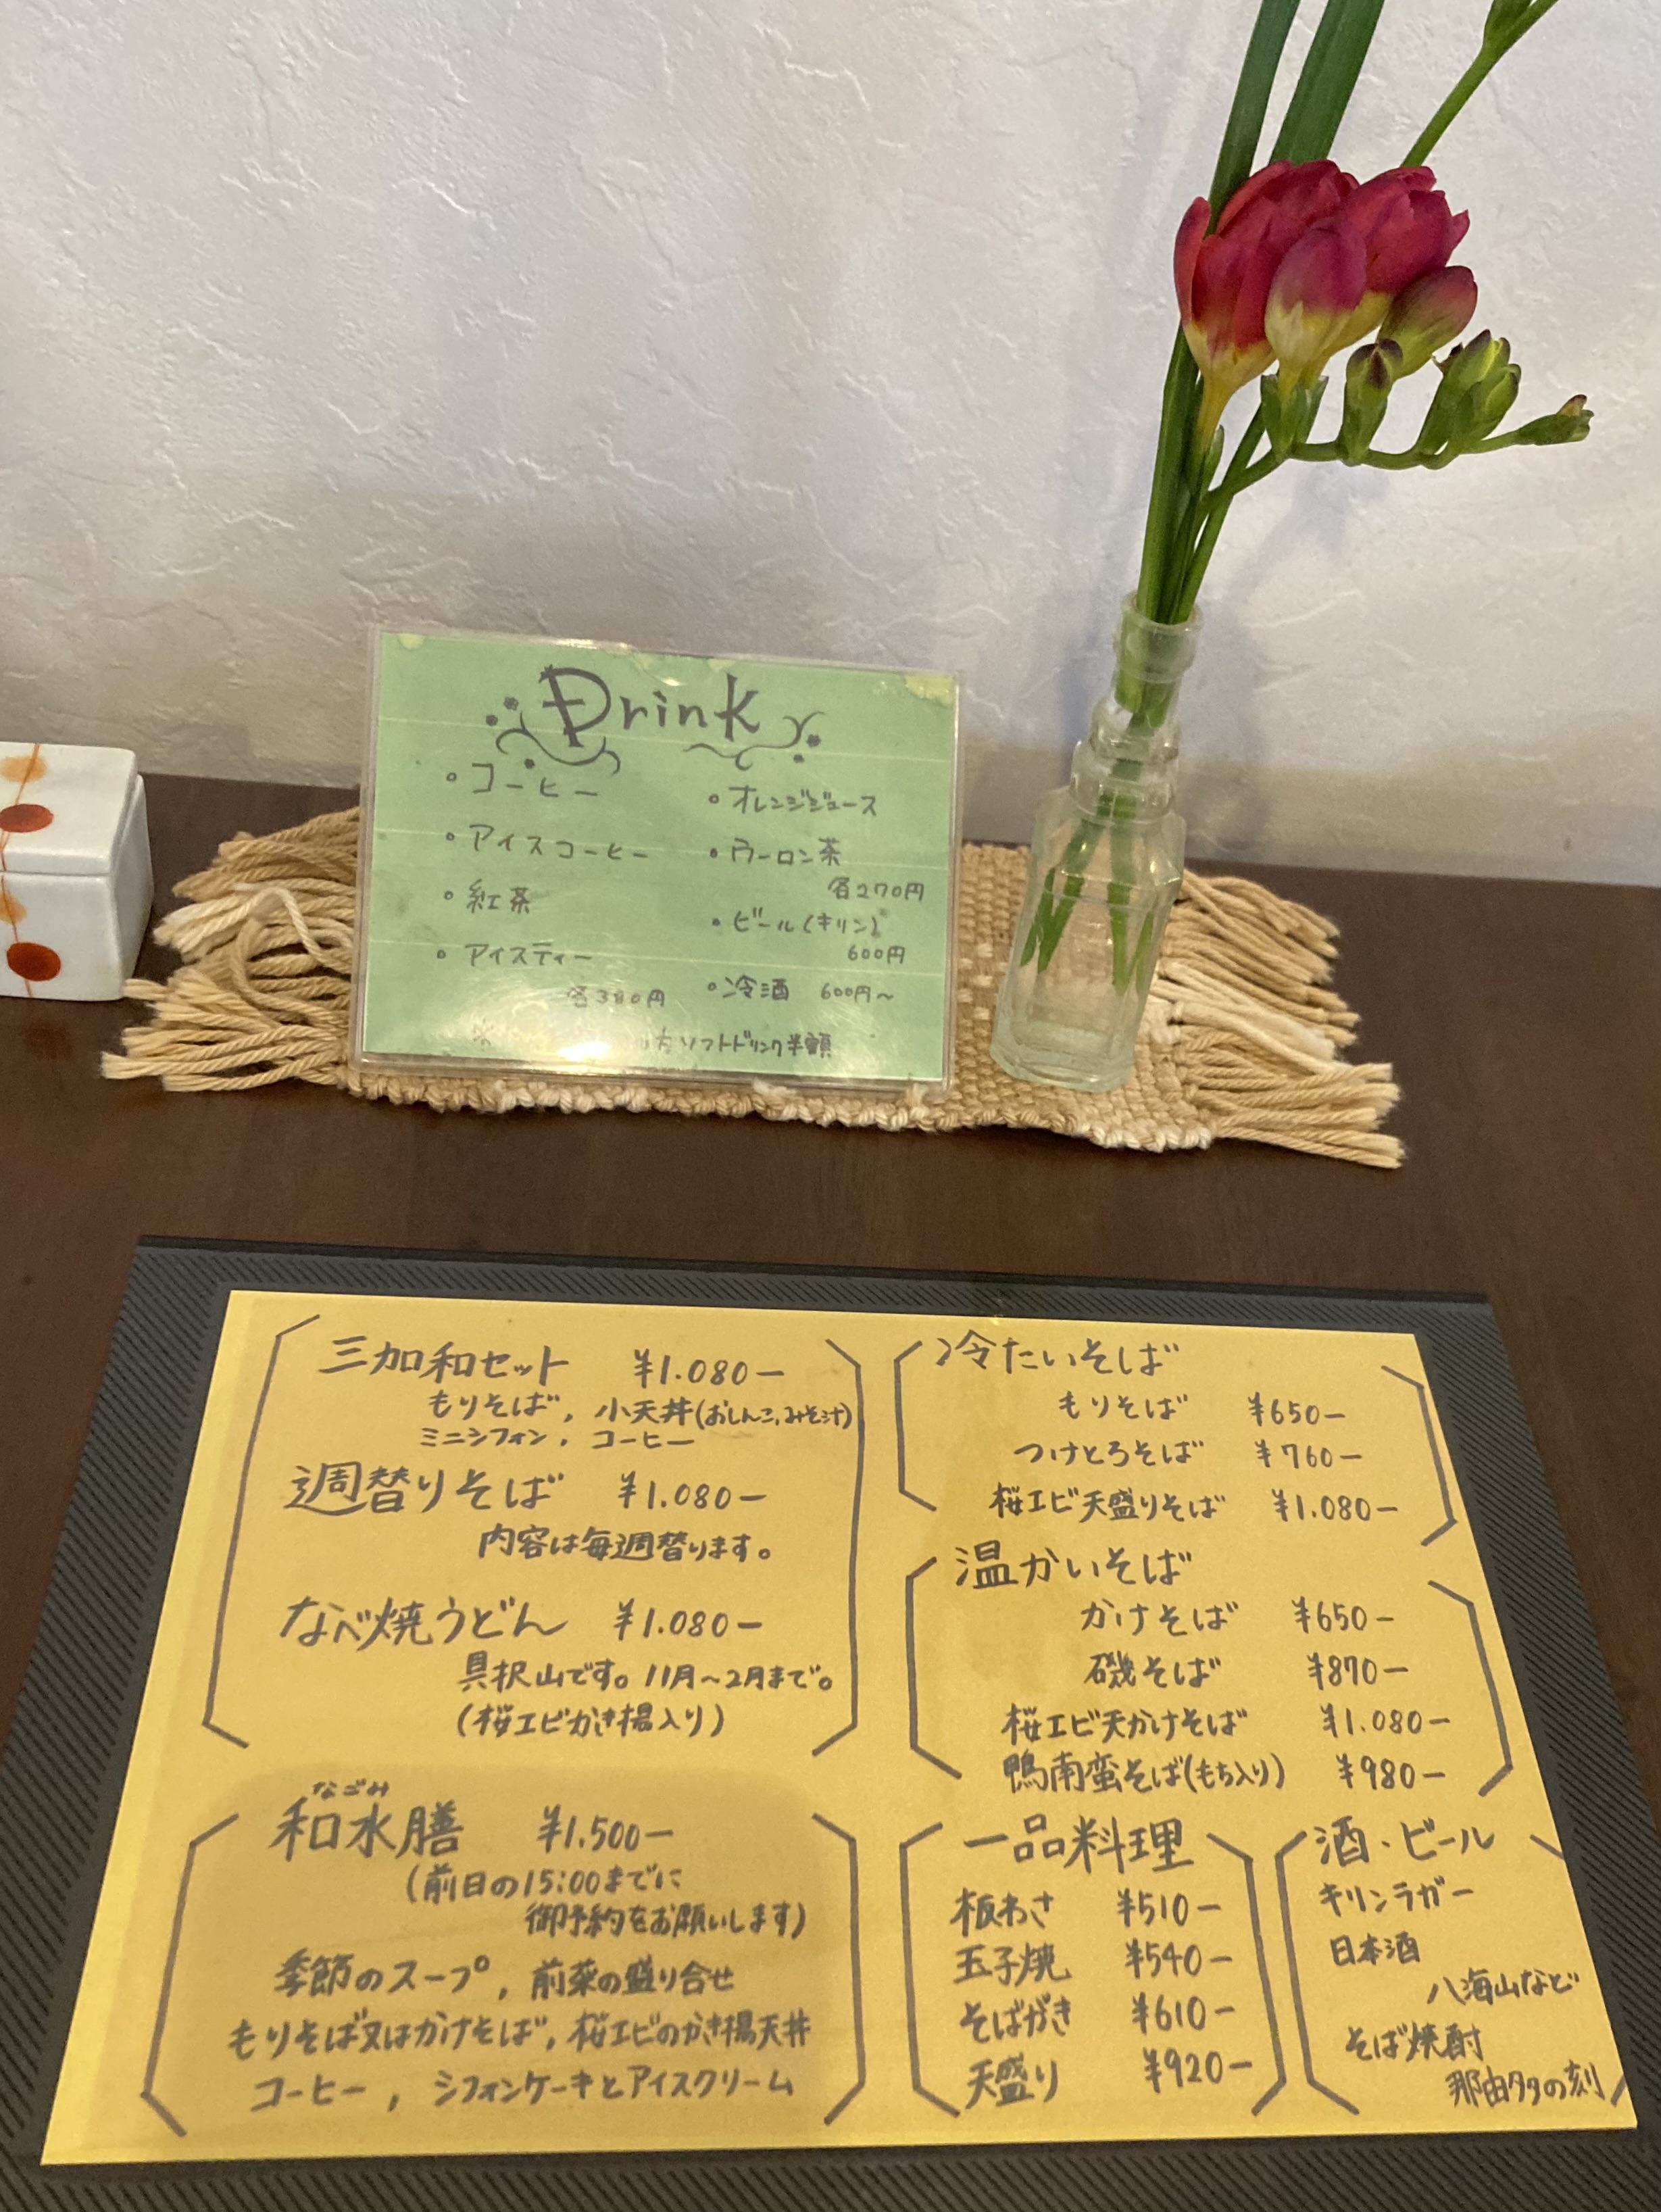 Drink
・コーヒー
・アイスコーヒー
・紅茶
・アイスティー
各380円
・オレンジジュース
・ウーロン茶
各270円
・ビール(キリン)
600円
・冷酒 600円～
ソフトドリンク半額
三加和セット ¥1.080-
もりそば, 小天丼(おしんこ,みそ汁)
ミニシフォン, コーヒー
週替りそば ¥1.080-
内容は毎週替ります。
なべ焼うどん ¥1.080-
具沢山です。11月～2月まで。
(桜エビかき揚入り)
なごみ
和水膳 ¥1.500-
(前日の15:00までに
御予約をお願いします)
季節のスープ, 前菜の盛り合せ
もりそば又はかけそば, 桜エビのかき揚天丼
コーヒー, シフォンケーキとアイスクリーム
冷たいそば
もりそば ¥650-
つけとろそば ¥760-
桜エビ天盛りそば ¥1.080-
温かいそば
かけそば ¥650-
磯そば ¥870-
桜エビ天かけそば ¥1.080-
鴨南蛮そば(もち入り) ¥980-
一品料理
板わさ ¥510-
玉子焼 ¥540-
そばがき ¥610-
天盛り ¥920-
酒・ビール
キリンラガー
日本酒
八海山など
そば焼酎
那由多の刻